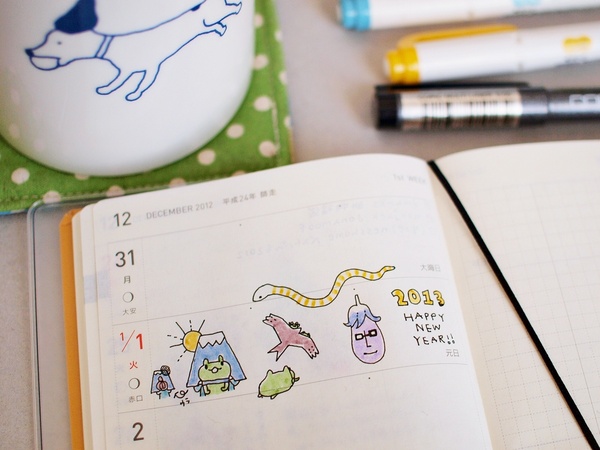 12 DECEMBER 2012 平成24年 師走
31
月
大安
大晦日
1/1
火
赤口
2013
HAPPY
NEW
YEAR!!
元日
2